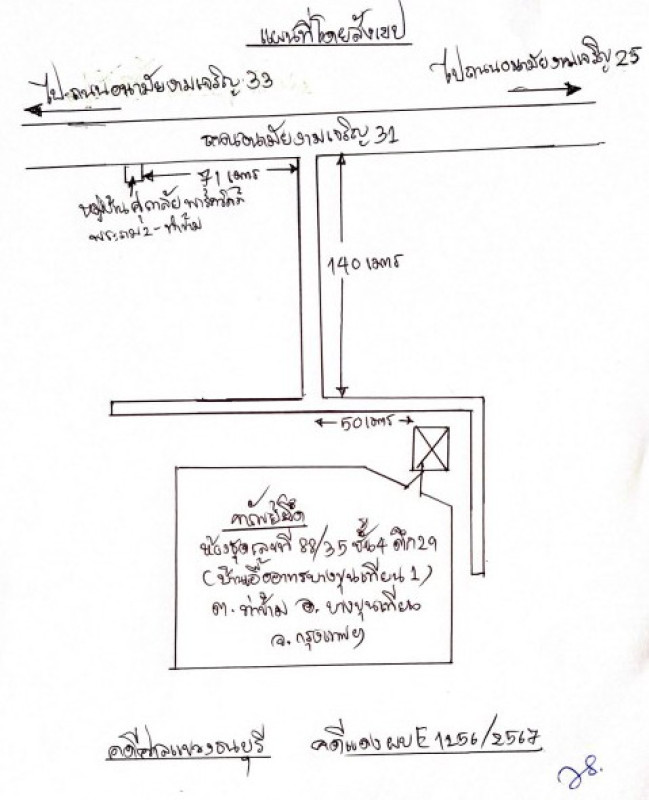 แผนที่โดยสังเขป
ไปถนนอนามัยงามเจริญ 33
ไปถนนอนามัยงามเจริญ 25
ถนนอนามัยงามเจริญ 31
71 เมตร
หมู่บ้านศุภาลัย พาร์ควิลล์
พระราม 2 - ท่าข้าม
140 เมตร
50 เมตร
ทรัพย์ยึด
ห้องชุดเลขที่ 88/35 ชั้น 4 ตึก 29
(บ้านเอื้ออาทรบางขุนเทียน 1)
ต. ท่าข้าม อ. บางขุนเทียน
จ. กรุงเทพฯ
คดีศาลแขวงธนบุรี คดีแดง ผบE 1256/2567